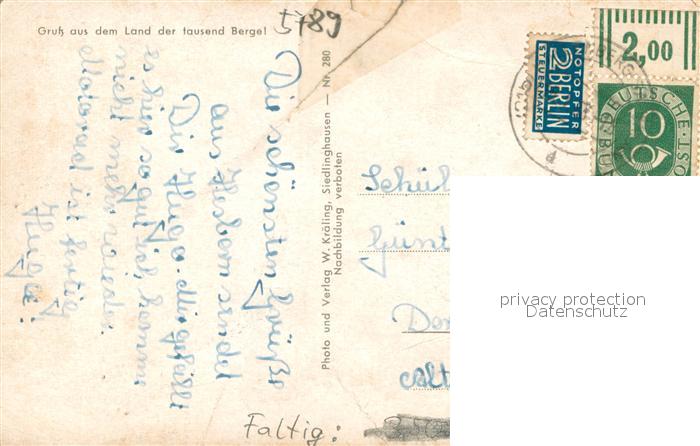 Gruß aus dem Land der tausend Berge!
5789
Die schönsten Grüße
aus Herbern sendet
Dir Hugo. Mir gefällt
es hier so gut ich komme
nicht mehr wieder.
Motorrad ist fertig
Hugo!
Photo und Verlag W. Kräling, Siedlinghausen — Nr. 280
Nachbildung verboten
NOTOPFER
2 BERLIN
STEUERMARKE
2,00
DEUTSCHE
10
Schül
Günt
Dor
Alt
privacy protection
Datenschutz
Faltig: